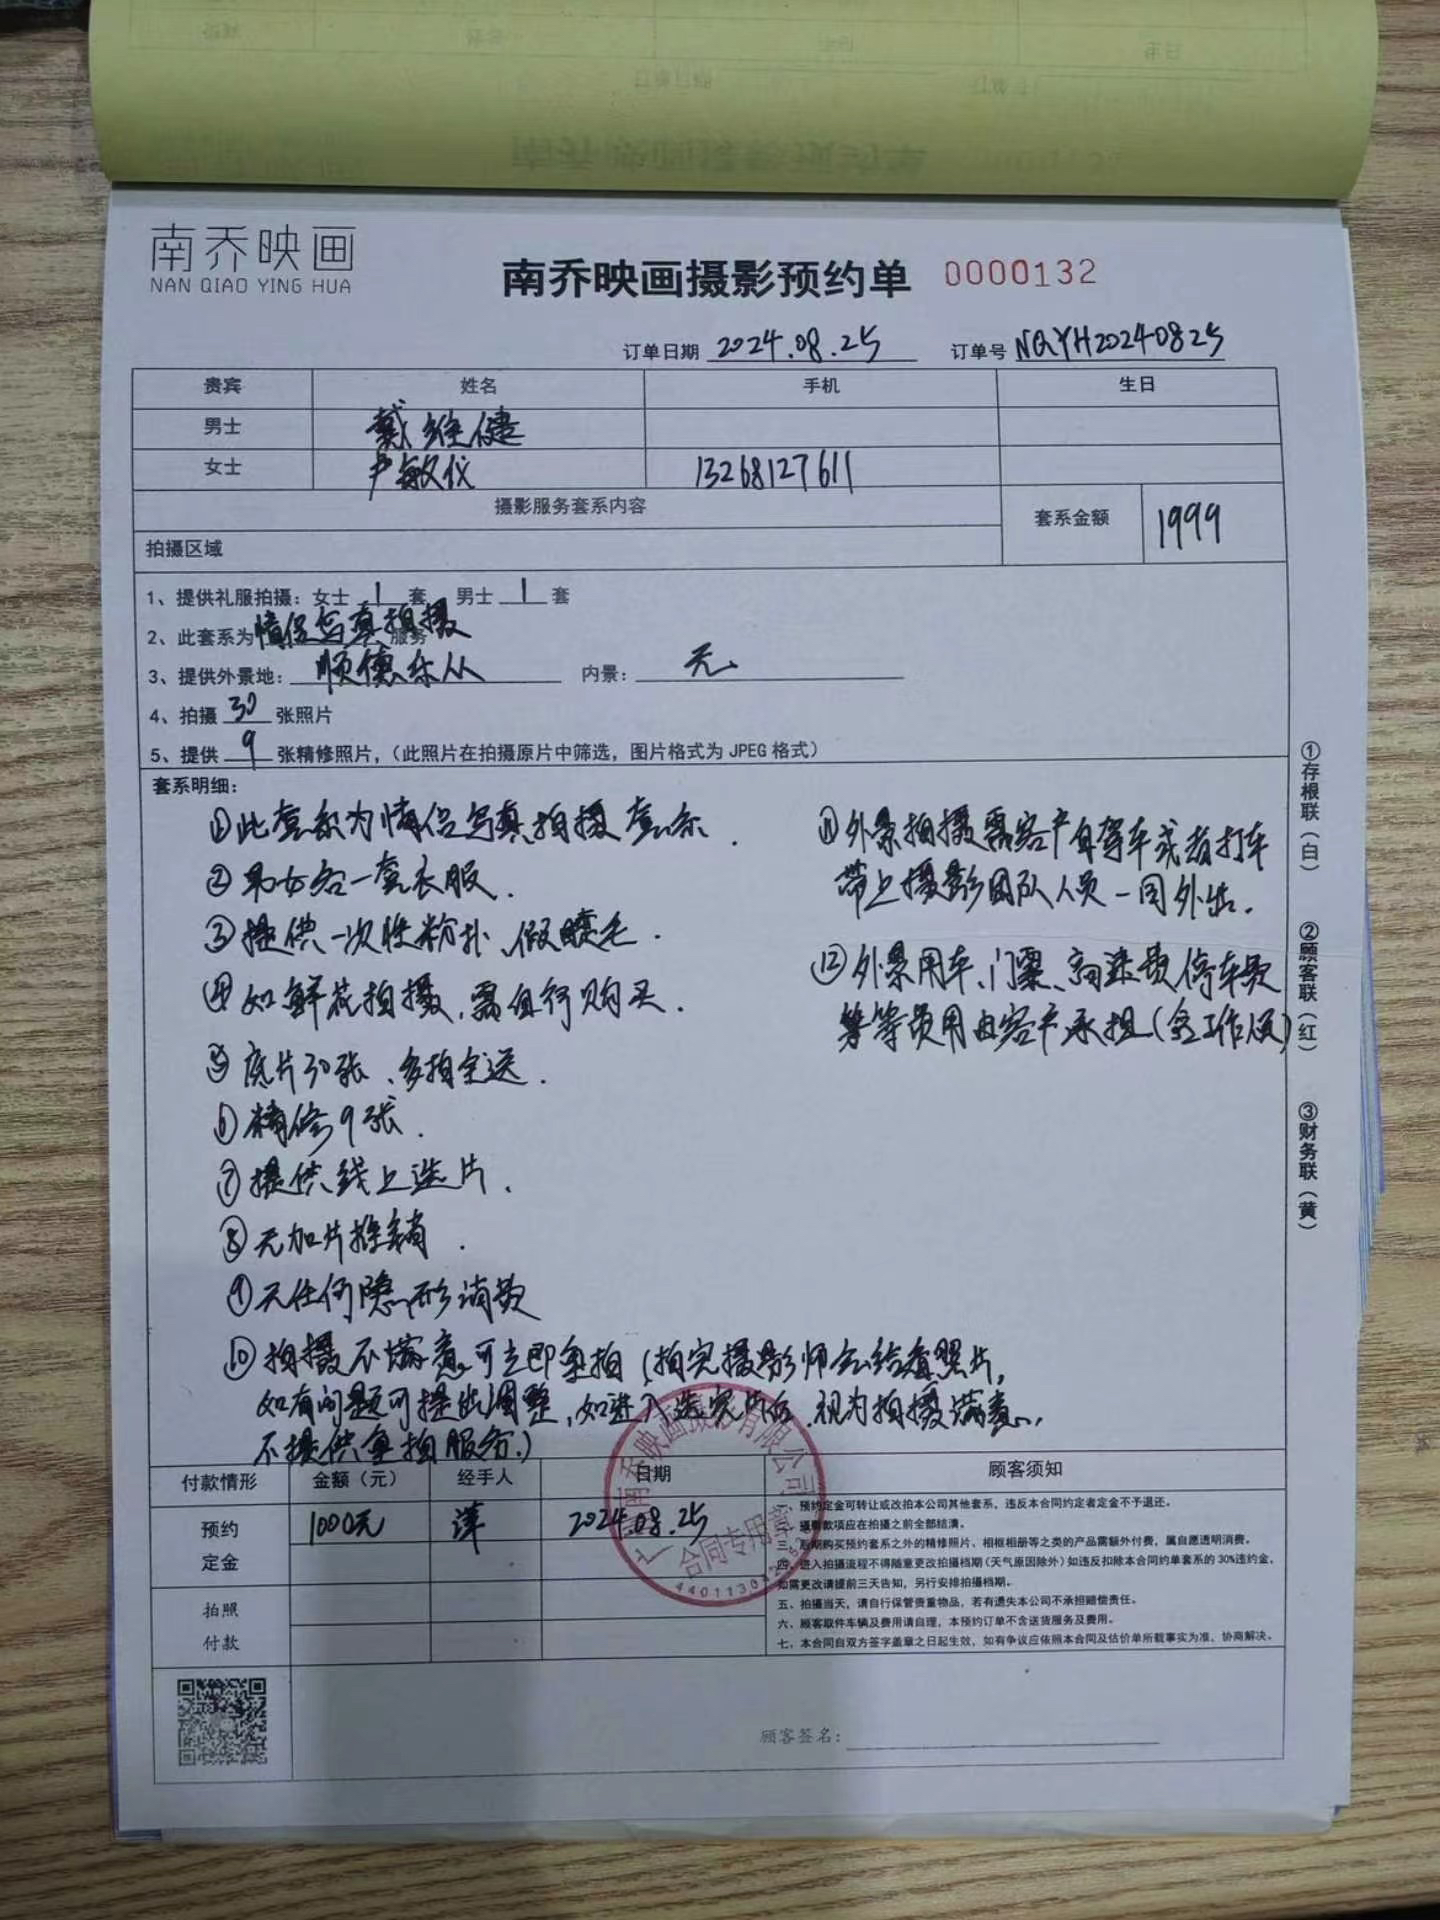 南乔映画
NAN QIAO YING HUA
南乔映画摄影预约单 0000132
订单日期 2024.08.25 订单号 NQYH20240825
贵宾 姓名 手机 生日
男士 戴维健
女士 卢敏仪 13268127611
摄影服务套系内容 套系金额 1999
拍摄区域
1、提供礼服拍摄：女士 1 套 男士 1 套
2、此套系为 情侣写真拍摄 服务
3、提供外景地： 顺德乐从 内景： 无
4、拍摄 30 张照片
5、提供 9 张精修照片，（此照片在拍摄原片中筛选，图片格式为 JPEG 格式）
套系明细：
①此套系为情侣写真拍摄套系.
②男女各一套衣服.
③提供一次性粉扑、假睫毛.
④如鲜花拍摄,需自行购买.
⑤底片30张、多拍全送.
⑥精修9张.
⑦提供线上选片.
⑧无加片推销.
⑨无任何隐形消费
⑩拍摄不满意,可立即重拍(拍完摄影师会给看照片,
如有问题可提出调整,如进入选完片后,视为拍摄满意,
不提供重拍服务.)
⑪外景拍摄需客户自驾车或者打车
带上摄影团队人员一同外出.
⑫外景用车、门票、高速费停车费
等等费用由客户承担(含工作人员)
①存根联（白） ②顾客联（红） ③财务联（黄）
付款情形 金额（元） 经手人 日期 顾客须知
预约 1000元 萍 2024.08.25
定金
拍照
付款
一、预约定金可转让或改拍本公司其他套系，违反本合同约定者定金不予退还。
二、摄影款项应在拍摄之前全部结清。
三、后期购买预约套系之外的精修照片、相框相册等之类的产品需额外付费，属自愿透明消费。
四、进入拍摄流程不得随意更改拍摄档期（天气原因除外）如违反扣除本合同约单套系的 30%违约金，
如需更改请提前三天告知，另行安排拍摄档期。
五、拍摄当天，请自行保管贵重物品，若有遗失本公司不承担赔偿责任。
六、顾客取件车辆及费用请自理，本预约订单不含送货服务及费用。
七、本合同自双方签字盖章之日起生效，如有争议应依照本合同及估价单所载事实为准，协商解决。
南乔映画摄影有限公司
合同专用章
顾客签名：